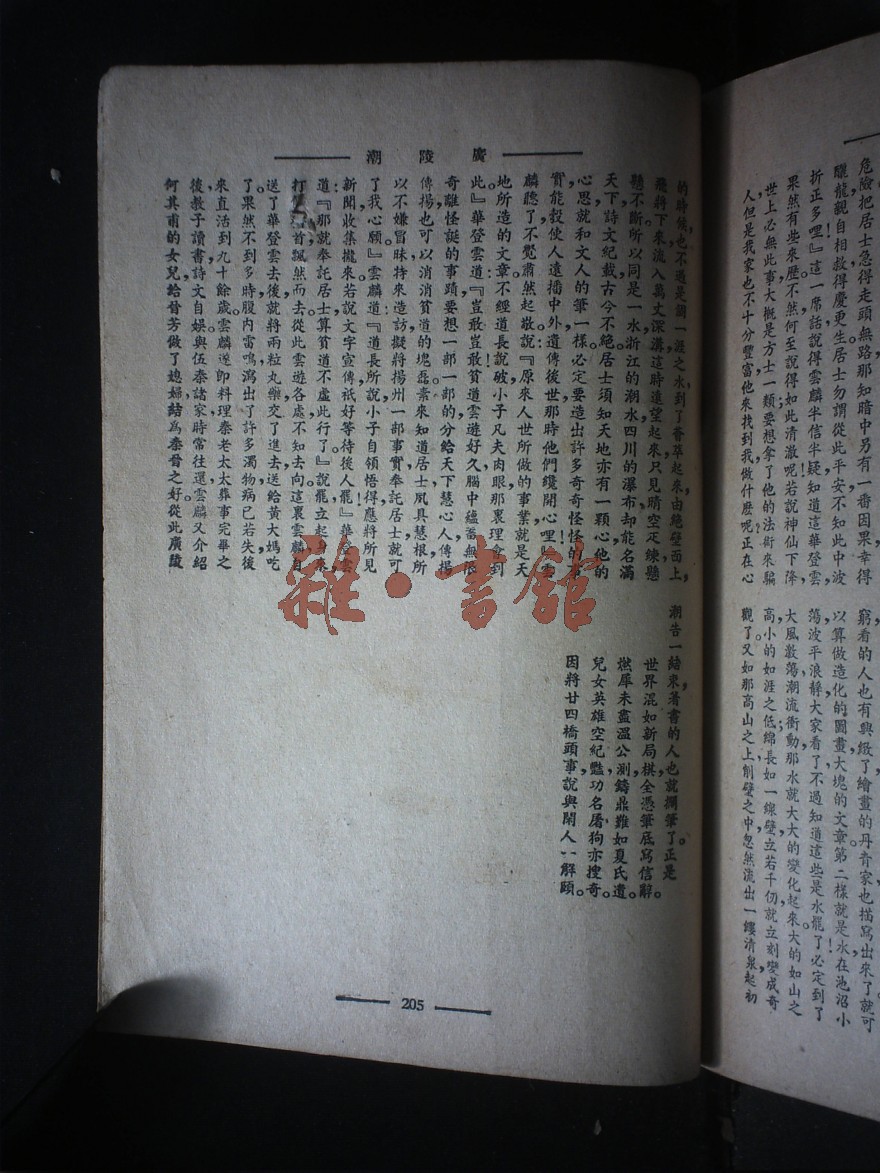 危險把居士急得走頭無路那知暗中另有一番因果幸得
驪龍親自相救得慶更生居士勿謂從此平安不知此中波
折正多哩』這一席話說得雲麟半信半疑知道這華登雲
果然有些來歷不然何至說得如此清澈呢若說神仙下降,
世上必無此事大概是方士一類要想拿了他的法術來騙
人但是我家也不十分豐富他來找到我做什麽呢正在心
窮看的人也有興緻了繪畫的丹青家也描寫出來了就可
以算做造化的圖畫大塊的文章第二樣就是水在池沼小
蕩波平浪靜大家看了不過知道這些是水罷了必定到了
大風激蕩潮流衝動那水就大大的變化起來大的如山之
高小的如涯之低綿長如一線壁立若千仞就立刻變成奇
觀了又如那高山之上削壁之中忽然流出一縷清泉起初
廣陵潮
的時候,也不過是調一涯之水到了薈萃起來由絶壁面上,
飛將下來流入萬丈深溝這時遠望起來只見晴空疋練懸
懸不斷所以同是一水浙江的潮水四川的瀑布却能名滿
天下詩文紀載古今不絕居士須知天地亦有一顆心他的
心思就和文人的筆一樣必定要造出許多奇奇怪怪的事
實能彀使人遠播中外遺傳後世那時他們纔開心哩』雲
麟聽了不覺肅然起敬說『原來人世所做的事業就是天
地所造的文章不經道長說破小子凡夫肉眼那裏理會到
此』華登雲道『豈敢豈敢貧道雲遊好久腦中蘊蓄無限
奇離怪誕的事蹟要想一部一部的分給天下慧心人傳揚
傳揚也可以消消貧道的塊磊素來知道居士夙具慧根所
以不嫌冒昧特來造訪擬將揚州一部事實奉託居士就可
了我心願』雲麟道『道長所說小子自領悟得應將所見
新聞收集攏來若說文字宣傳祇好等待後人罷』華登雲
道:『那就奉託居士算貧道不虛此行了』說罷立起身來
打首飄然而去從此雲遊各處不知去向這裏雲麟自
送了華登雲去後就將兩粒丸藥交了進去送給黃大媽吃
了。果然不到多時腹内雷鳴瀉出了許多濁物病已若失後
來直活到九十餘歲雲麟遂卽料理秦老太太葬事完畢之
後教子讀書詩文自娛與伍秦諸家時常往還雲麟又介紹
何其甫的女兒給晉芳做了媳婦結爲秦晉之好從此廣陵
潮告一結束著書的人也就擱筆了。正是
世界混如新局棋全憑筆底寫信辭。
燃犀未盡溫公測鑄鼎難如夏氏遺。
兒女英雄空紀豔功名屠狗亦搜奇。
因將廿四橋頭事說與閒人一解頤。
205
雜·書館